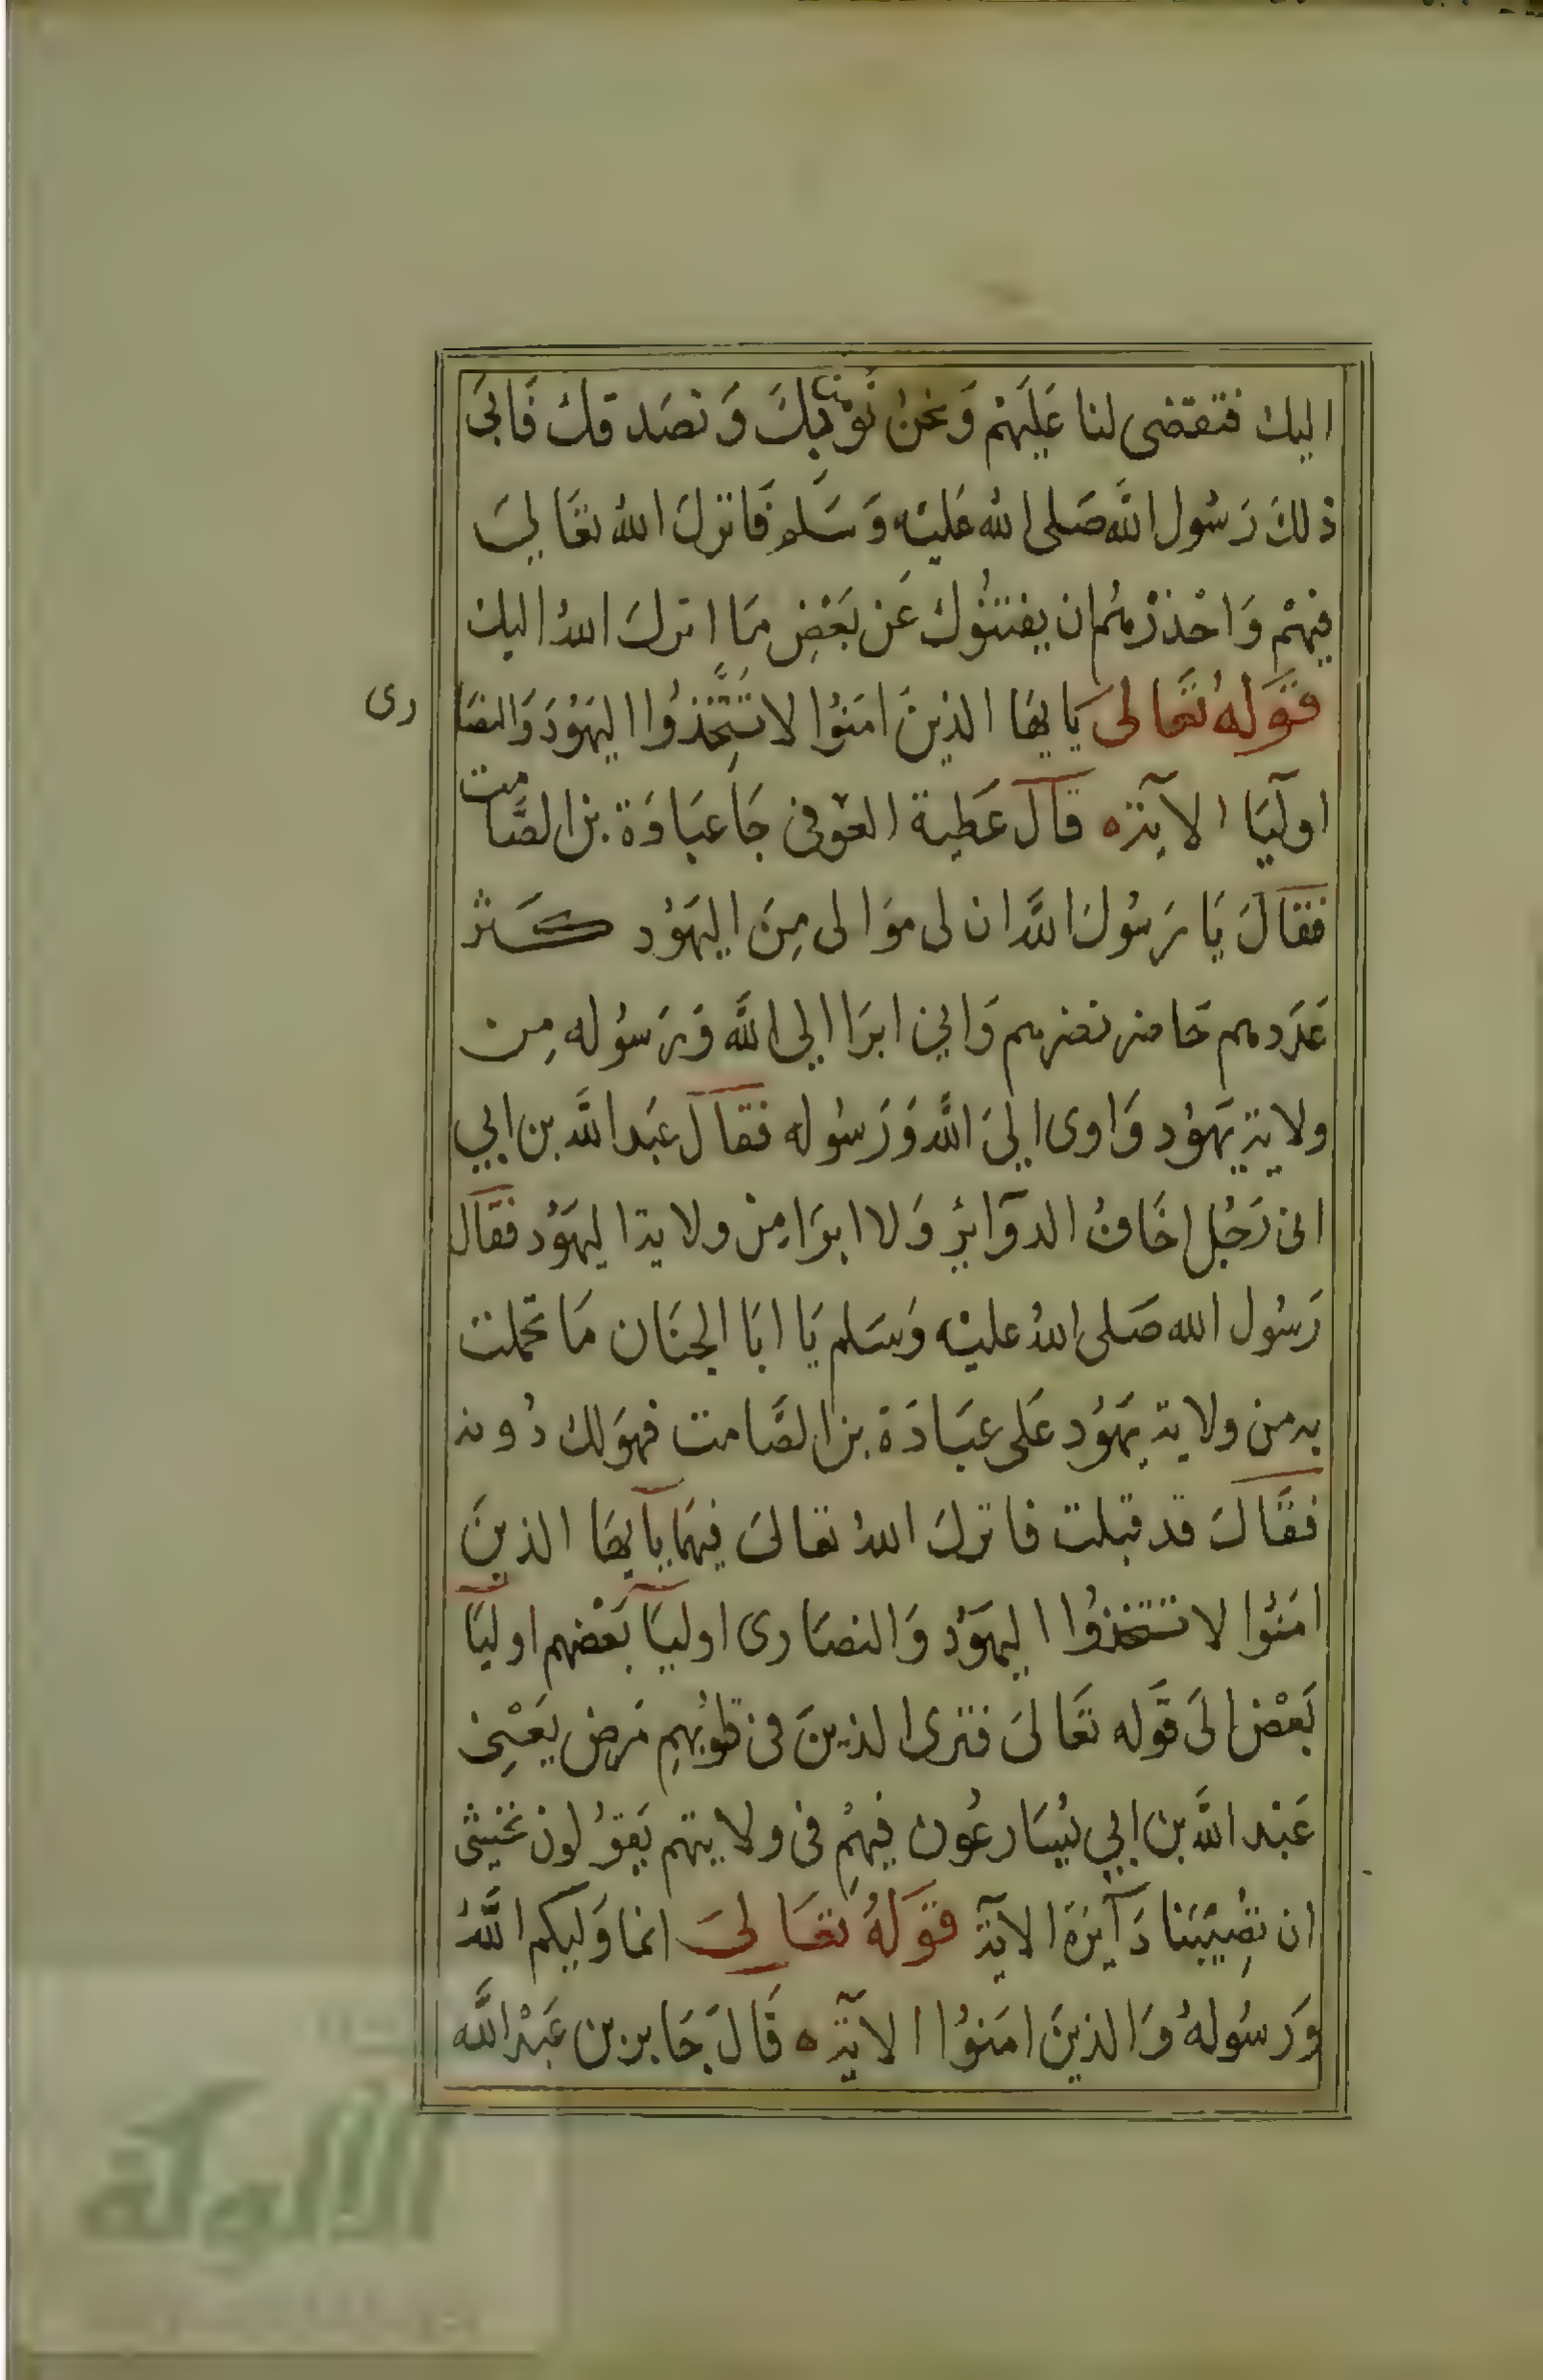 اليك فتقضى لنا عَلَيهْم وَنحن نُؤمن بِكَ وَنصَدقك فَابىَ
ذلكَ رَسُول اللَّه صَلى الله عَليْه وَسَلم فَانزلَ اللهُ تعَالىَ
فيهْم وَاحْذرْهُم ان يفتنُوكَ عَن بَعْضِ مَا انزلَ اللهُ اليك
قَولهُ تَعَالىَ يَايهَا الذينَ امَنُوا لا تَتَّخِذُوا اليَهُودَ وَالنصَارى
اوليَآ الآيَة قَالَ عَطية العَوفى جَا عبَادَة بن الصَّامت
فقَالَ يَا رَسُولَ اللَّه ان لى مَوَالى مِنَ اليَهُود كَثر
عَدَدهم حَاضر نصرهم وَانى ابرَا الى اللَّه وَرَسُوله مِن
ولاية يَهوُد وَاوى الىَ اللَّه وَرَسُوله فقالَ عَبد اللَّه بن ابي
انى رَجُل اخَافُ الدوَآئِر وَلا ابرَا مِن ولاية اليَهُود فقَال
رَسُول الله صَلى اللهُ عليْه وَسَلم يَا ابَا الحبَاب مَا تحملت
به من ولاية يَهُود عَلى عبَادَة بن الصَّامت فهوَ لك دُونه
فقَالَ قد قبلت فانزلَ اللهُ تعالىَ فيهمَا يآيهَا الذينَ
امَنُوا لا تتخذُوا اليهَوُد وَالنصَارى اوليَآ بَعْضهم اوليَآ
بَعْض الىَ قَوله تَعَالىَ فترى الذينَ فى قلوُبهِم مَرض يَعْنِى
عَبْد اللَّه بن ابي يُسَارعُون فيهِمْ فى ولايتهم يَقوُلون نخشى
ان تصِيْبَنا دَآئرَة الآية قَولَهُ تعَالىَ انما وَليكم اللَّهُ
وَرَسُولهُ وَالذينَ امَنوُا الآيَة قَالَ جَابر بن عَبْد اللَّه
الألوكة